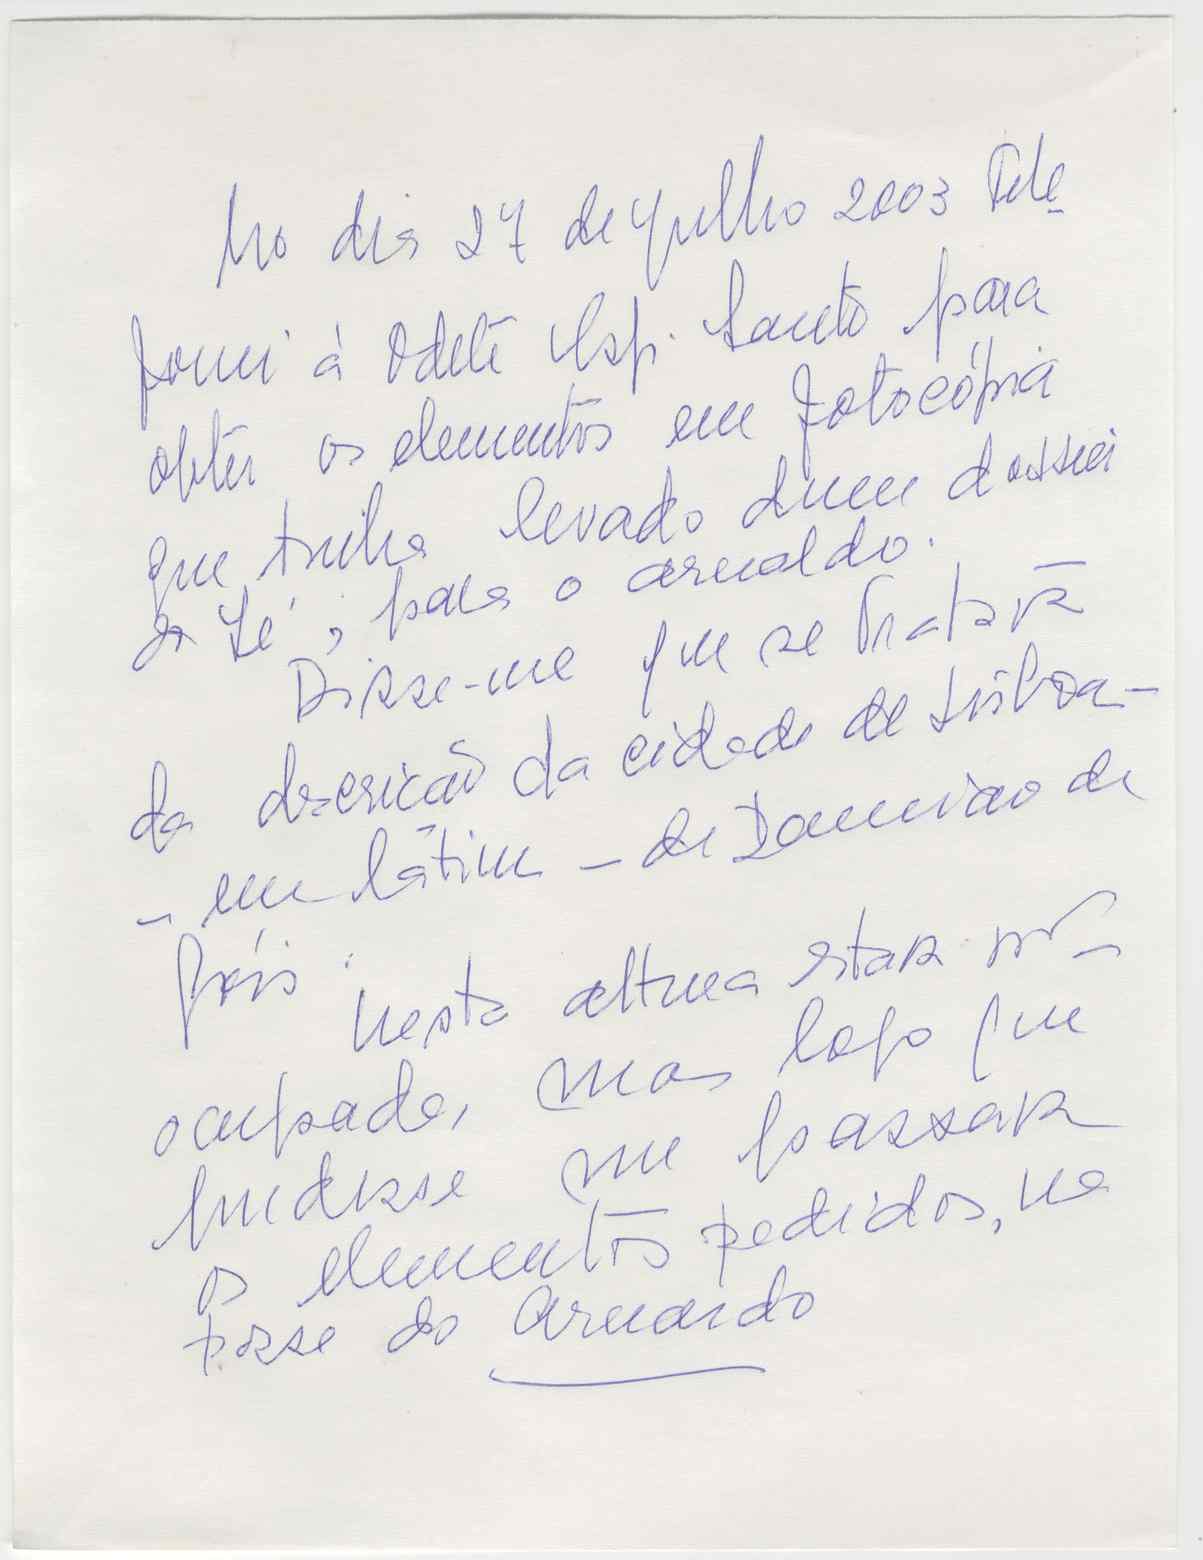 No dia 27 de Julho 2003 Tele
fonei à Odete Esp. Santo para
obter os elementos em fotocópia
que tinha levado dum dossier
do Zé, para o Arnaldo.
Disse-me que se tratava
da descrição da cidade de Lisboa -
- em látim - de Damião de
Góis. Nesta altura estava mº
ocupada, mas logo que
pudesse me passava
os elementos pedidos, na
posse do Arnaldo